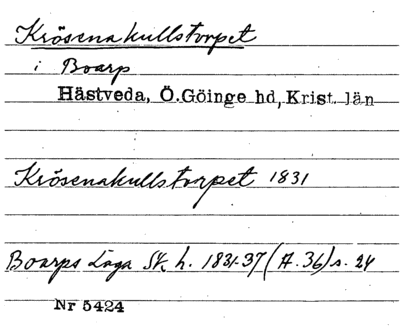 Krösenakullstorpet
i Boarp
Hästveda, Ö.Göinge hd, Krist. län
Krösenakullstorpet 1831
Boarps Laga Sk. h. 1831-37 (A. 36) s. 24
Nr 5424